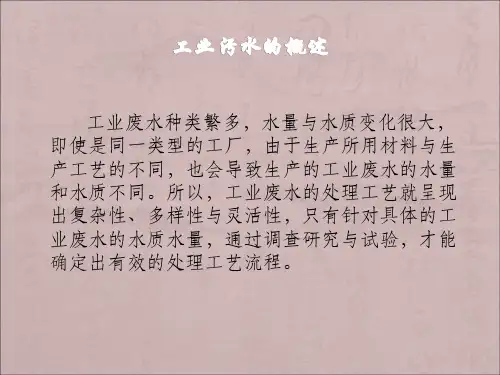 工业污水的概述
工业废水种类繁多，水量与水质变化很大，
即使是同一类型的工厂，由于生产所用材料与生
产工艺的不同，也会导致生产的工业废水的水量
和水质不同。所以，工业废水的处理工艺就呈现
出复杂性、多样性与灵活性，只有针对具体的工
业废水的水质水量，通过调查研究与试验，才能
确定出有效的处理工艺流程。